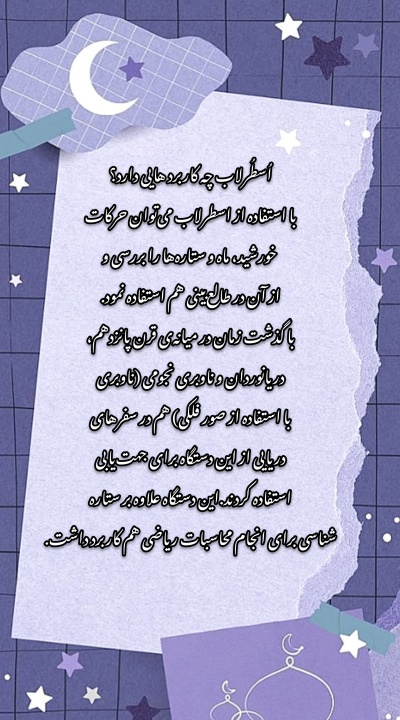 اُسطُرلاب چه کاربردهایی دارد؟
با استفاده از اسطرلاب می‌توان حرکات
خورشید، ماه و ستاره‌ها را بررسی و
از آن در طالع‌بینی هم استفاده نمود.
با گذشت زمان در میانه‌ی قرن پانزدهم،
دریانوردان و ناوبری نجومی (ناوبری
با استفاده از صور فلکی) هم در سفرهای
دریایی از این دستگاه برای جهت‌یابی
استفاده کردند.این دستگاه علاوه بر ستاره
شناسی برای انجام محاسبات ریاضی هم کاربرد داشت.